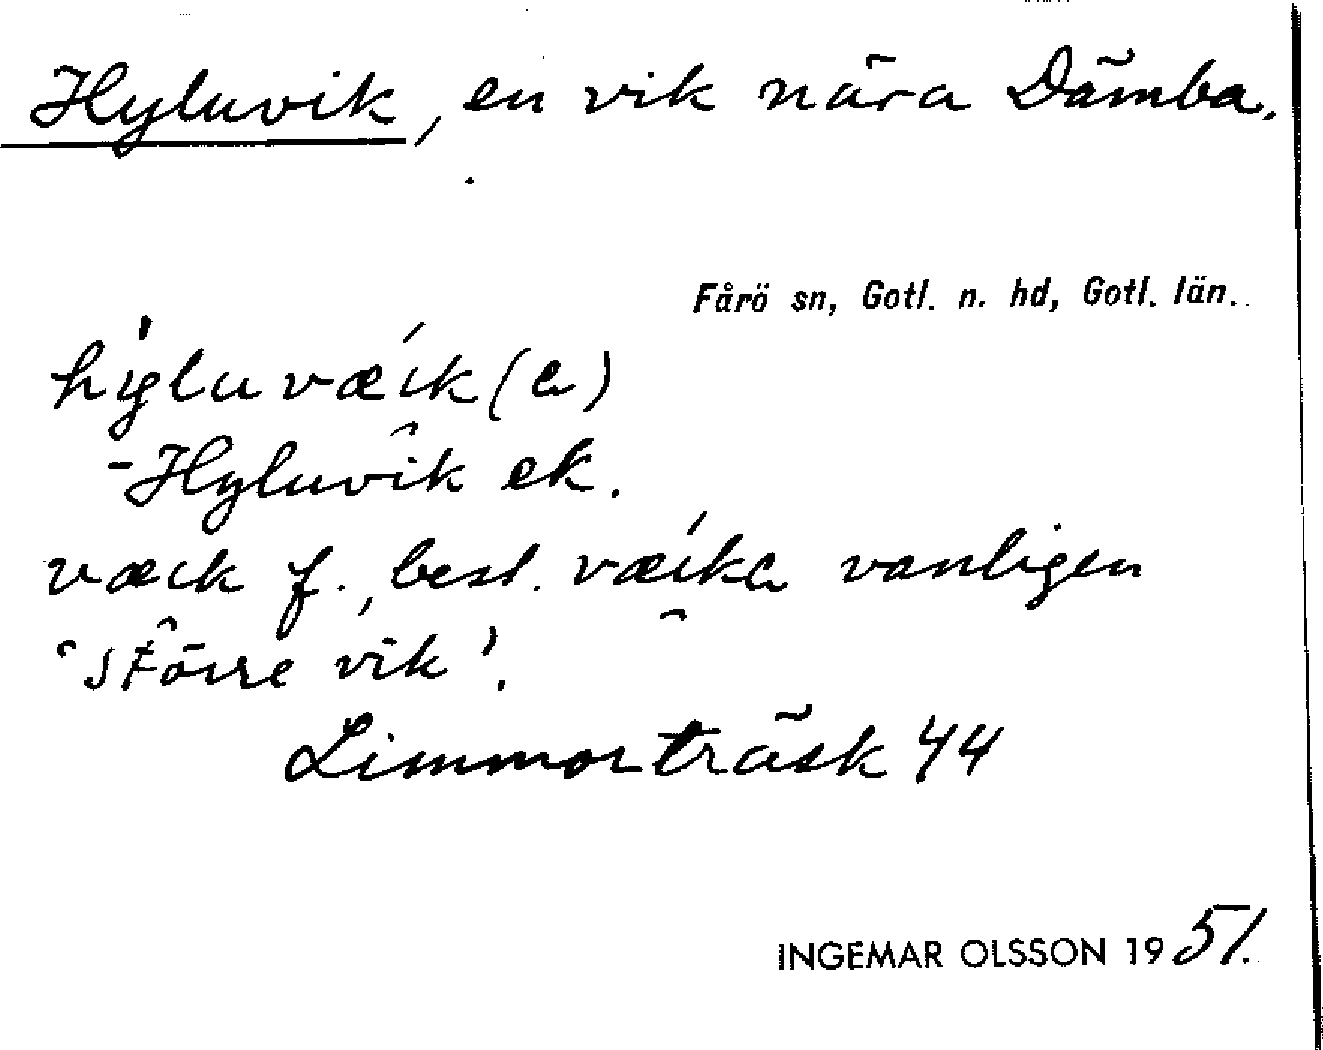 Hyluvik, en vik nära Dämba.
Fårö sn, Gotl. n. hd, Gotl. län.
hyluvæik(a)
-Hyluvik ek.
væik f., best. væika vanligen
'större vik'.
Limmorträsk 44
INGEMAR OLSSON 1951.